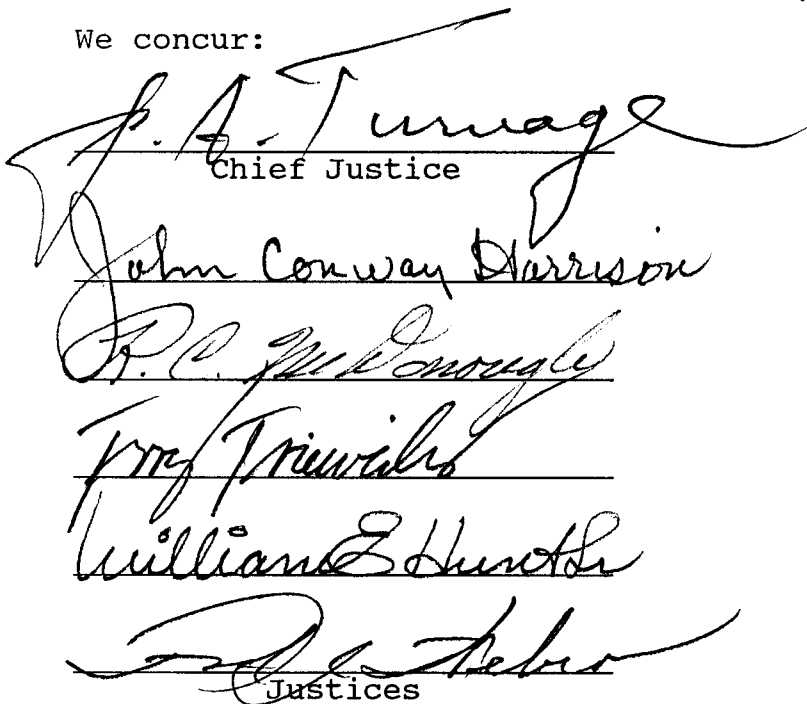 We concur:
J. A. Turnage
Chief Justice
John Conway Harrison
R. C. McDonough
Terry Trieweiler
William E Hunt Sr
Justices